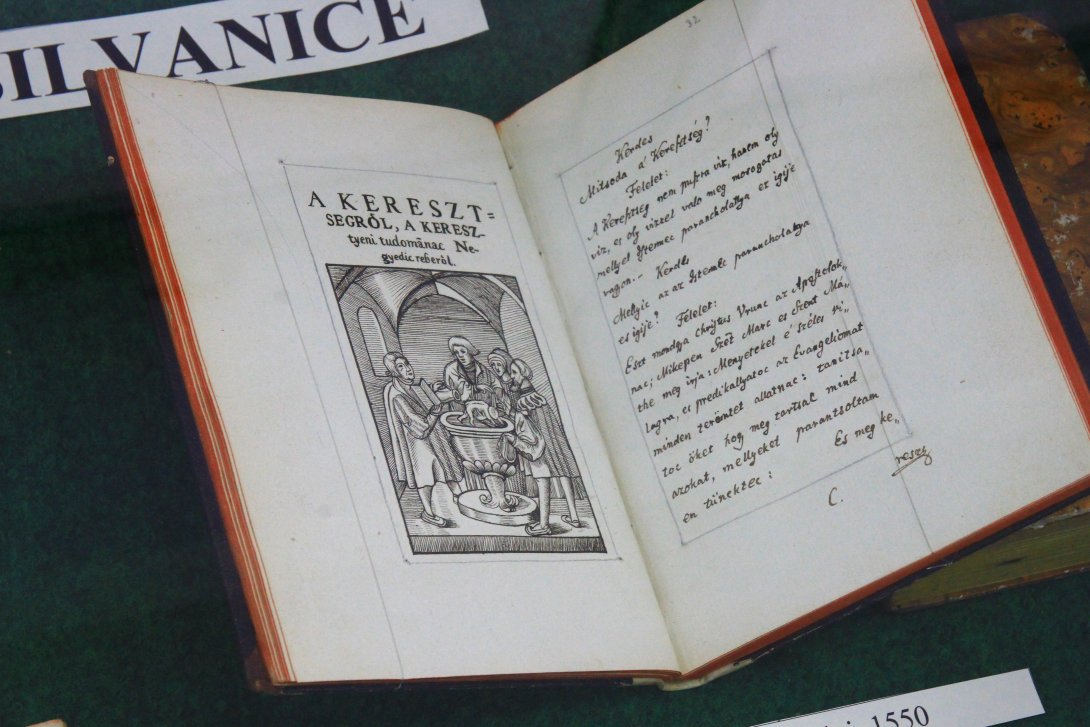 SILVANICE
A KERESZT=
SEGRŐL, A KERESZ-
tyeni tudomânac Ne-
gyedic reßeról.
32
Kerdes
Mitsoda a' Keresztség?
Felelet:
A' Kerefztség nem pufzta viz, hanem oly
viz, es oly vizzel valo meg mosogatas
mellyet Istennec parancholattya ez igije
vagon.- Kerdes
Mellyic az az Istennec parancholattya
es igije? Felelet:
Ezt mondgya Christus Vrunc az Apostolok"
nac; Mikepen Szét Marc es Szent Má"
the meg irja: Mennyetekel é széles vi"
lagra, es predikallyatoc az Evangeliomat
minden teremtet allatnac: tanitsa"
toc öket hog meg tartsac mind
azokat, mellyeket parantsoltam
en tünektec: Es meg ke"
resz
C.
1550